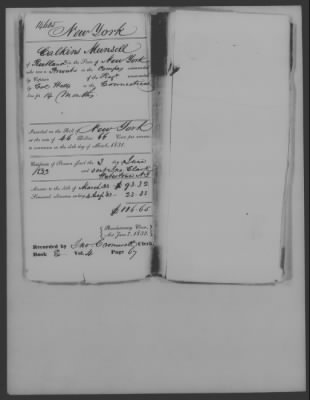 14605
New York
Calkins Munsell
of Rutland in the State of New York
who was a Private in the Company commanded
by Captain of the Regt commanded
by Col. Webb in the Connecticut
line for 14 Months
Inscribed on the Roll of New York
at the rate of 46 Dollars 66 Cents per annum,
to commence on the 4th day of March, 1831.
Certificate of Pension issued the 3 day of Jan
1833 and sent Clark
Watertown N.Y.
Arrears to the 4th of March 32 $ 93.32
Semi-anl. Allowance ending 4 Sep 33 23.33
$116.65
Revolutionary Claim,
Act June 7, 1832.
Recorded by Clerk,
Book E Vol. 4 Page 67